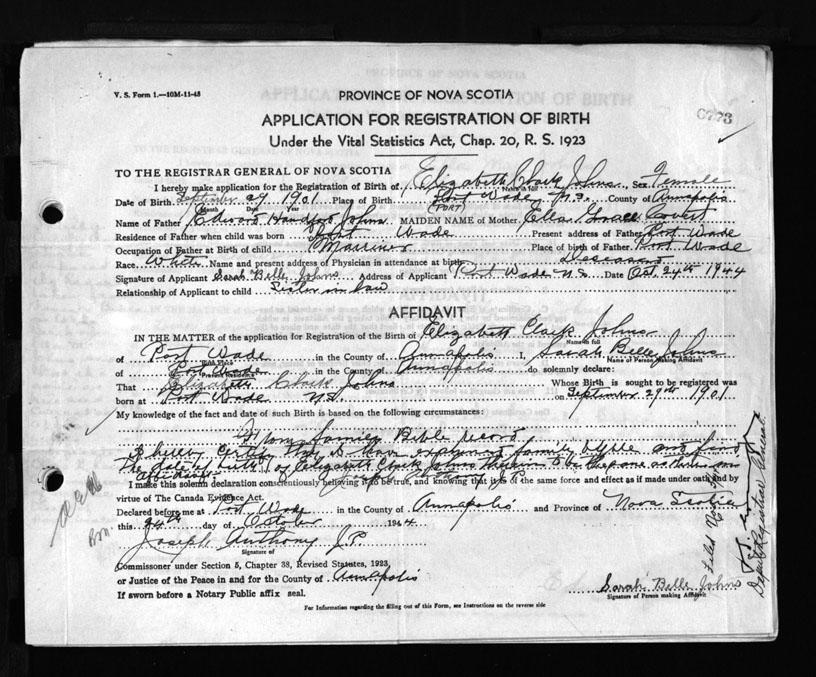 V. S. Form 1.—10M-11-43
PROVINCE OF NOVA SCOTIA
APPLICATION FOR REGISTRATION OF BIRTH
Under the Vital Statistics Act, Chap. 20, R. S. 1923
TO THE REGISTRAR GENERAL OF NOVA SCOTIA
I hereby make application for the Registration of Birth of Elizabeth Clark Johns Sex Female
Name in full
Date of Birth September 29 1901 Place of Birth Port Wade N.S. County of Annapolis
Month Day Year PORT
Name of Father Edward Johns MAIDEN NAME of Mother Ella Grace Covert
Residence of Father when child was born Port Wade Present address of Father Port Wade
Occupation of Father at Birth of child Mariner Place of birth of Father Port Wade
Race White Name and present address of Physician in attendance at birth Deceased
Signature of Applicant Sarah Belle Johns Address of Applicant Port Wade N.S. Date Oct. 24th 1944
Relationship of Applicant to child Sister in law
AFFIDAVIT
IN THE MATTER of the application for Registration of the Birth of Elizabeth Clark Johns
Name in full
of Port Wade in the County of Annapolis I, Sarah Belle Johns
Name of Person Making Affidavit
of Port Wade in the County of Annapolis do solemnly declare:
Present Residence
That Elizabeth Clark Johns Whose Birth is sought to be registered was
born at Port Wade N.S. on September 29th 1901
My knowledge of the fact and date of such Birth is based on the following circumstances:
From family Bible record
I hereby certify that I have examined family Bible and find
the date of birth of Elizabeth Clark Johns therein to be the same as
affidavit Joseph Anthony J.P.
I make this solemn declaration conscientiously believing it to be true, and knowing that it is of the same force and effect as if made under oath and by
virtue of The Canada Evidence Act.
Declared before me at Port Wade in the County of Annapolis and Province of Nova Scotia
this 24th day of October 1944
Joseph Anthony J.P.
Signature of
Commissioner under Section 5, Chapter 38, Revised Statutes, 1923,
or Justice of the Peace in and for the County of Annapolis
If sworn before a Notary Public affix seal.
Sarah Belle Johns
Signature of Person making Affidavit
For Information regarding the filling out of this Form, see Instructions on the reverse side
Filed
Deputy Registrar General